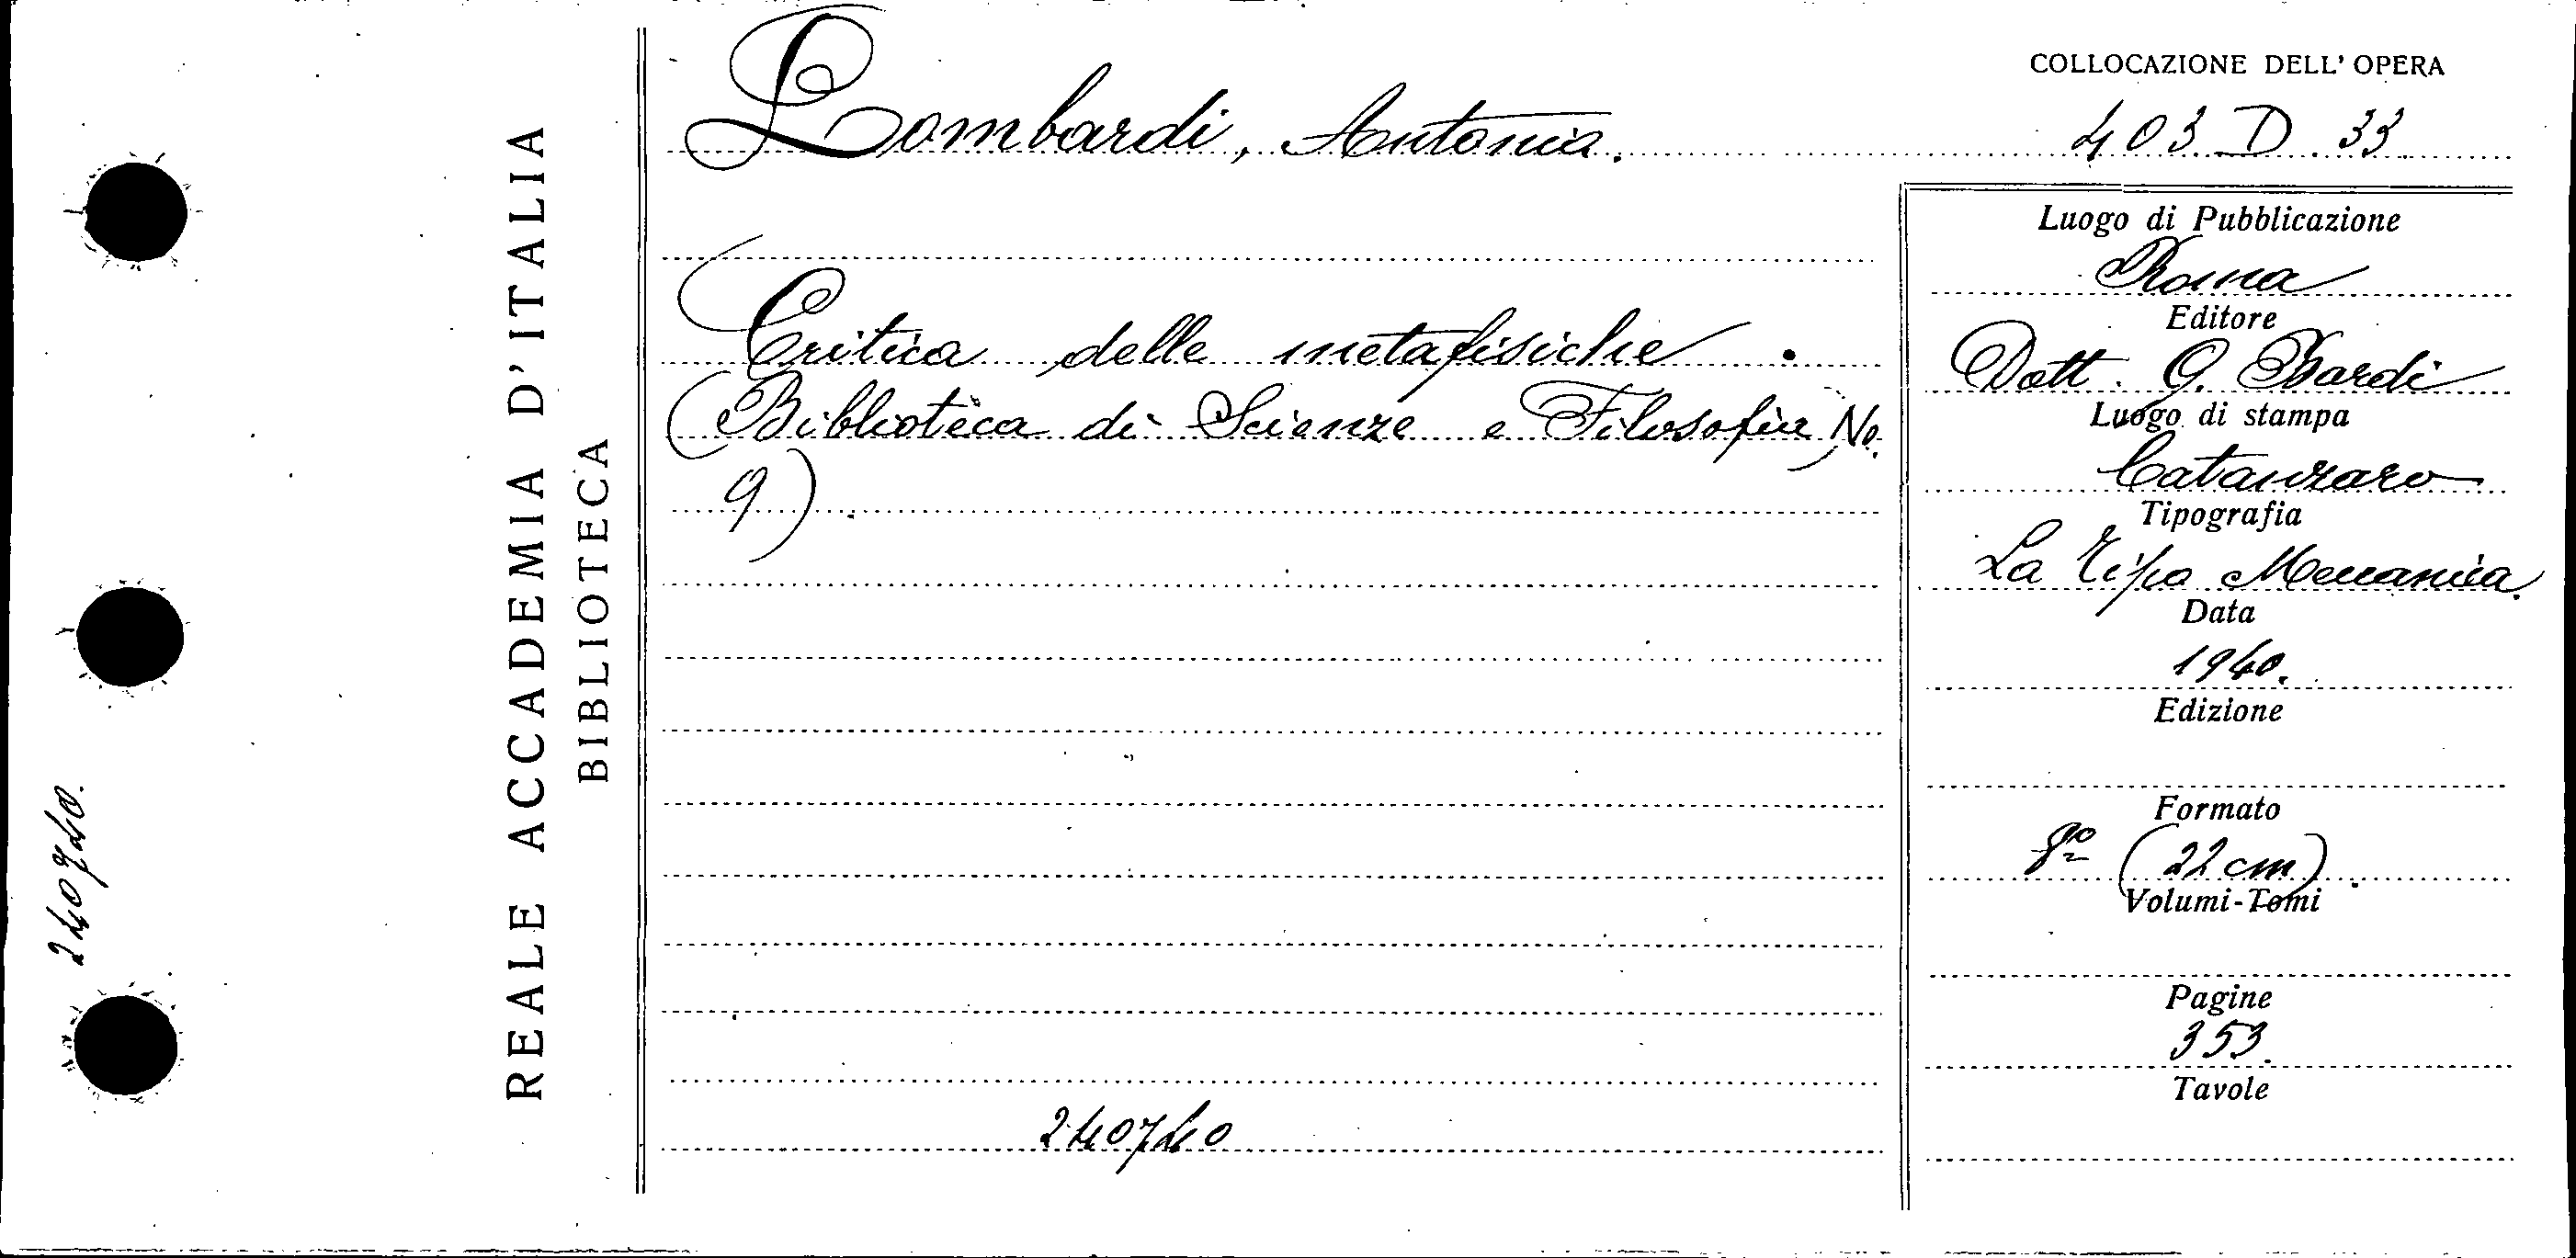 240740.
REALE ACCADEMIA D'ITALIA
BIBLIOTECA
Lombardi, Antonia.
Critica delle metafisiche.
(Biblioteca di Scienze e Filosofia, No.
9)
240740
COLLOCAZIONE DELL'OPERA
403 D. 33
Luogo di Pubblicazione
Roma
Editore
Dott. G. Bardi
Luogo di stampa
Catanzaro
Tipografia
La Tipo Meccanica.
Data
1940.
Edizione
Formato
8º (22 cm).
Volumi-Tomi
Pagine
353.
Tavole